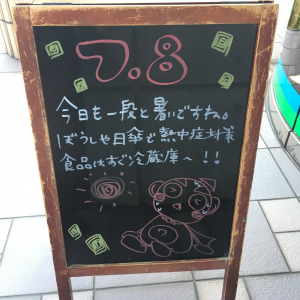 7.8
今日も一段と暑いですね。
ぼうしや日傘で熱中症対策
食品はすぐ冷蔵庫へ!!